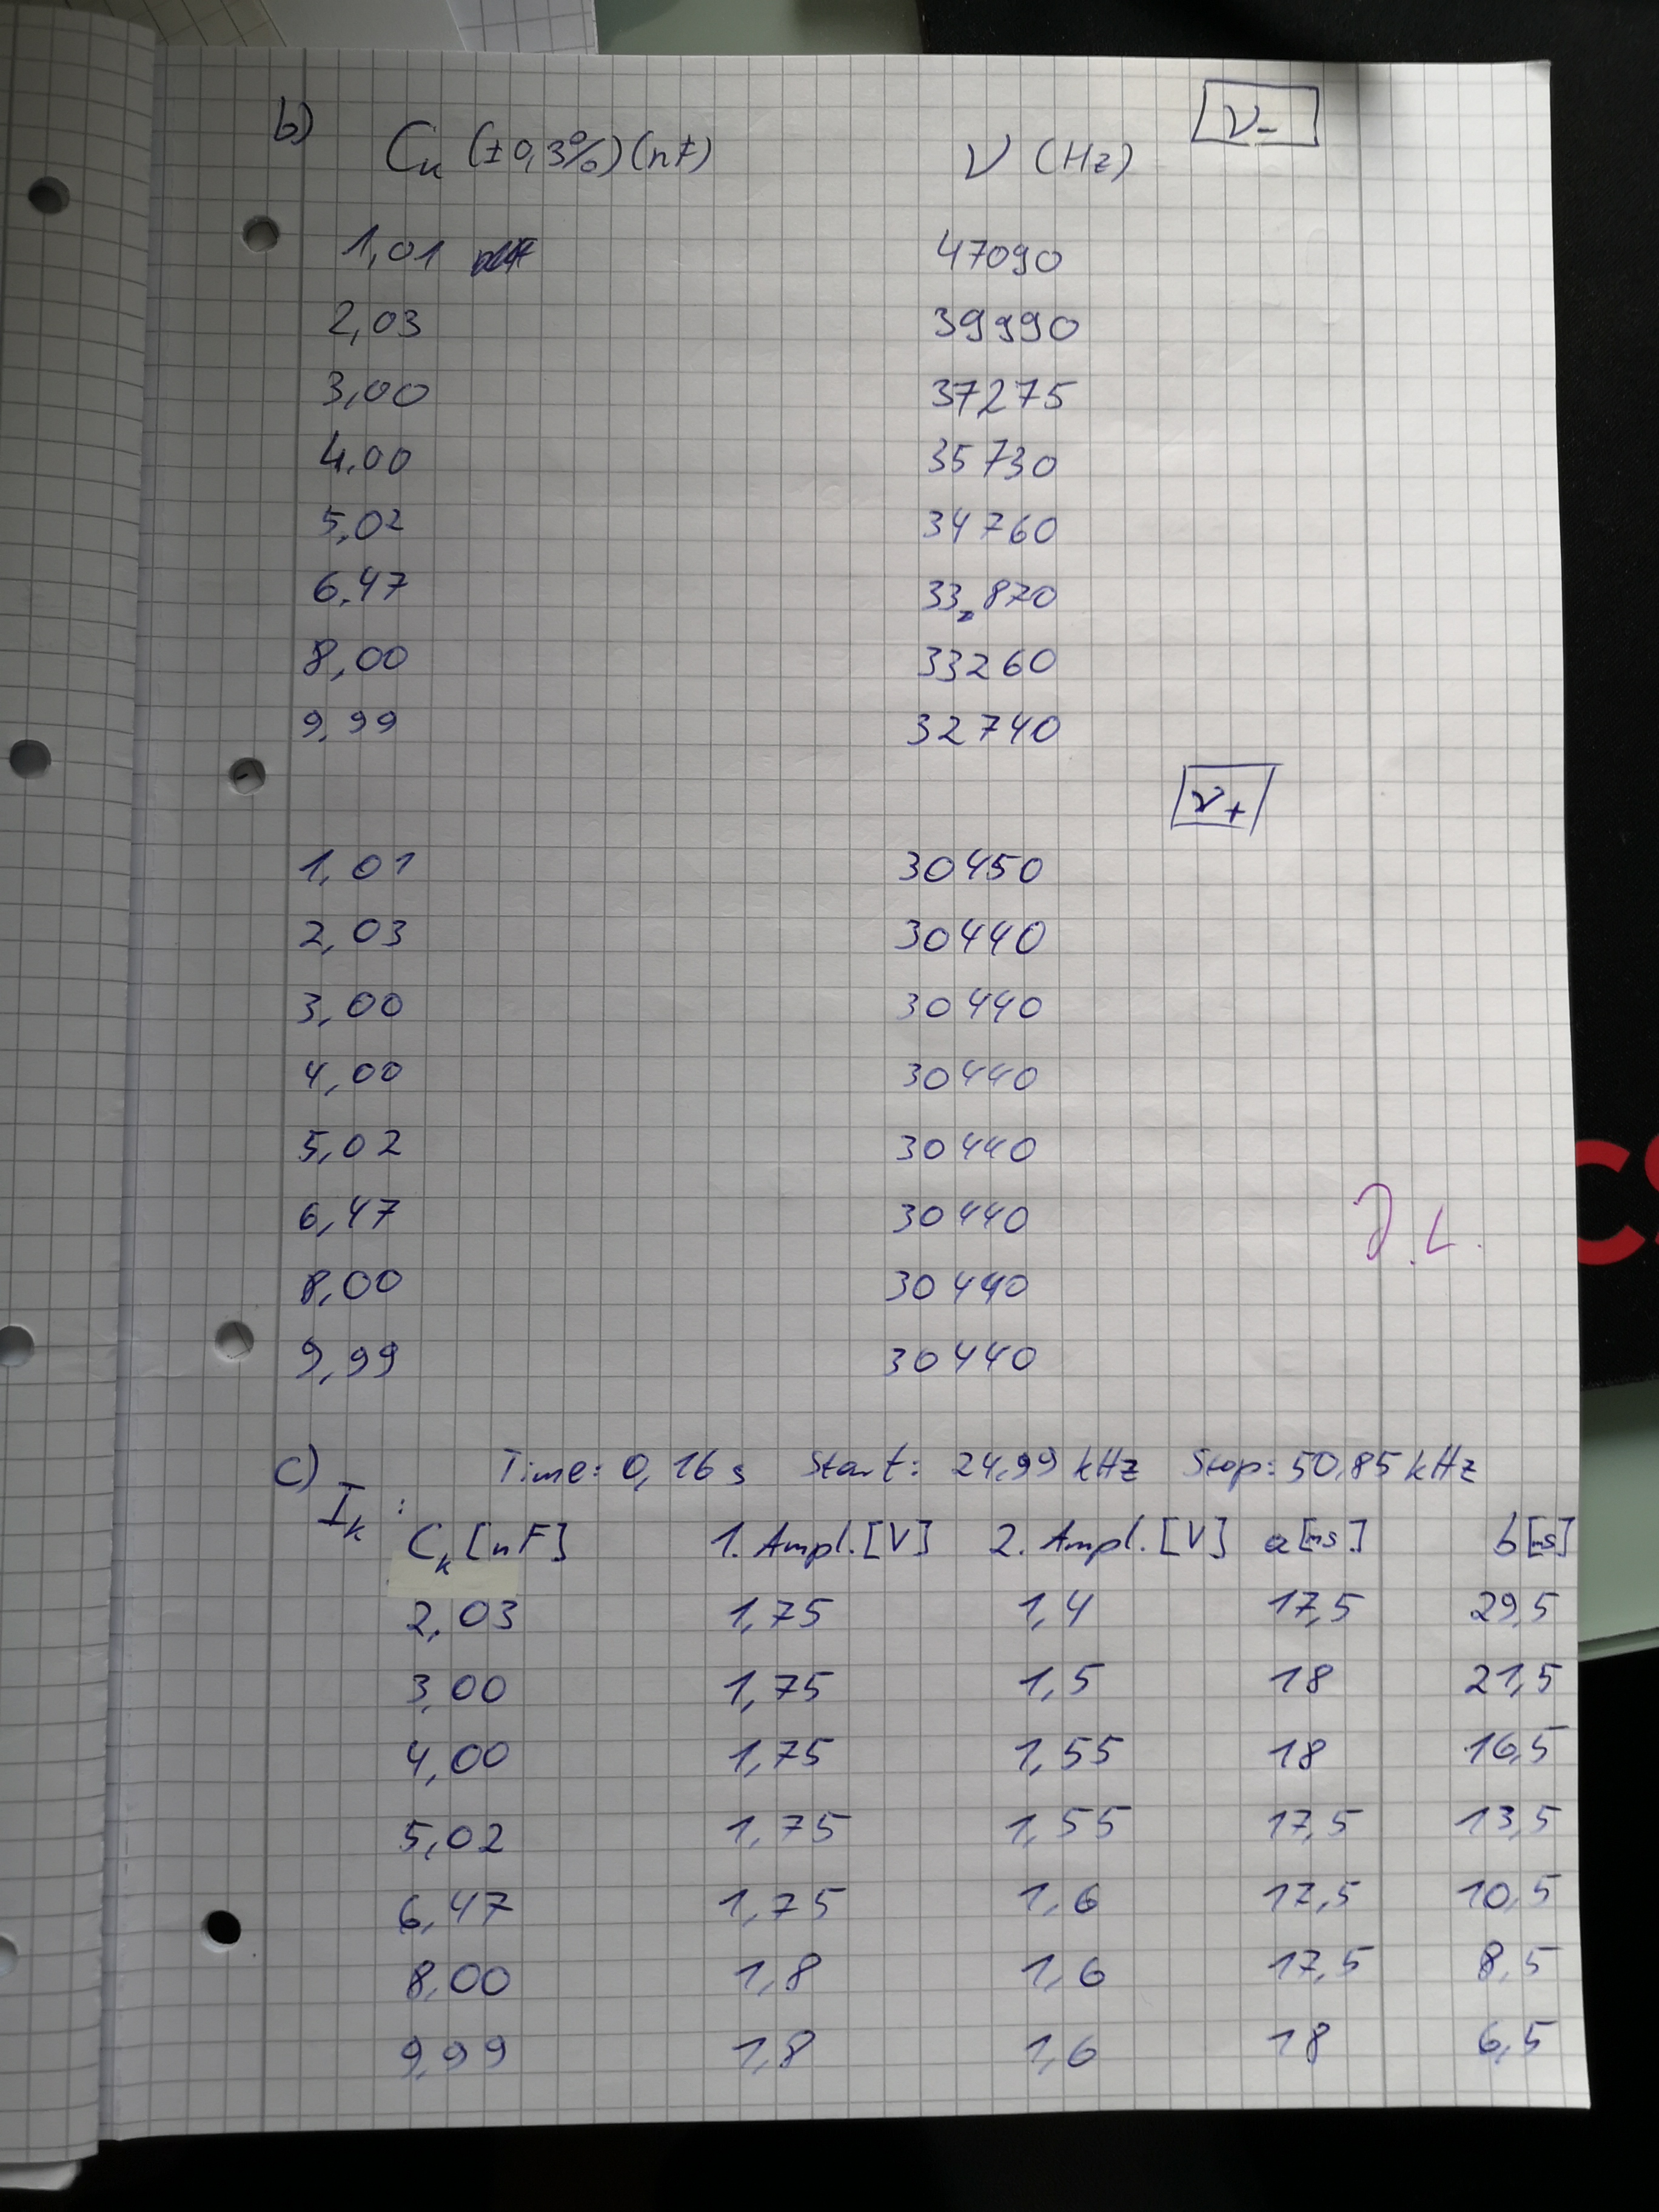 b)
ν-
Ck (±0,3%)(nF) ν (Hz)
1,01 47090
2,03 39990
3,00 37275
4,00 35730
5,02 34760
6,47 33870
8,00 33260
9,99 32740
ν+
1,01 30450
2,03 30440
3,00 30440
4,00 30440
5,02 30440
6,47 30440
8,00 30440
9,99 30440
J.L.
c) Time: 0,16 s Start: 24,99 kHz Stop: 50,85 kHz
Ik:
Ck [nF] 1. Ampl. [V] 2. Ampl. [V] a [ms] b [ms]
2,03 1,75 1,4 17,5 29,5
3,00 1,75 1,5 18 21,5
4,00 1,75 1,55 18 16,5
5,02 1,75 1,55 17,5 13,5
6,47 1,75 1,6 17,5 10,5
8,00 1,8 1,6 17,5 8,5
9,99 1,8 1,6 18 6,5